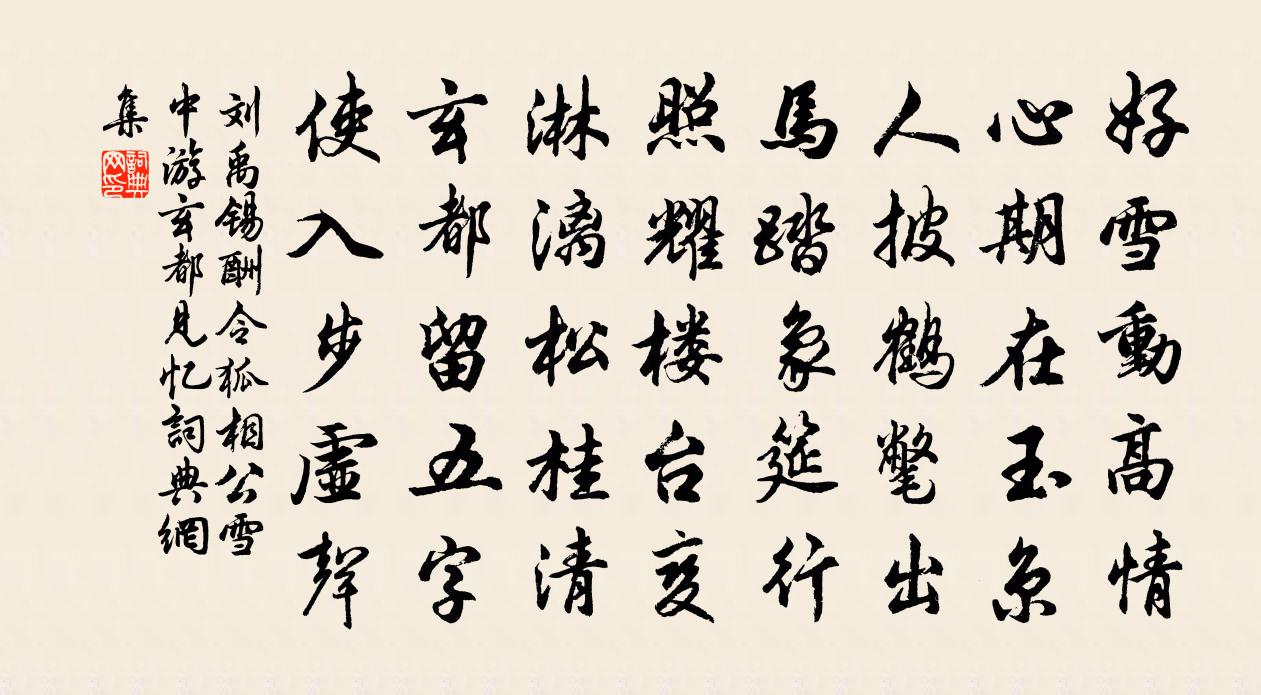 好雪動高情
心期在玉京
人披鶴氅出
馬踏象筵行
照耀楼台变
淋漓松桂清
玄都留五字
使入步虛聲
刘禹锡酬令狐相公雪
中游玄都見忆詞典網
集
詞典
网印